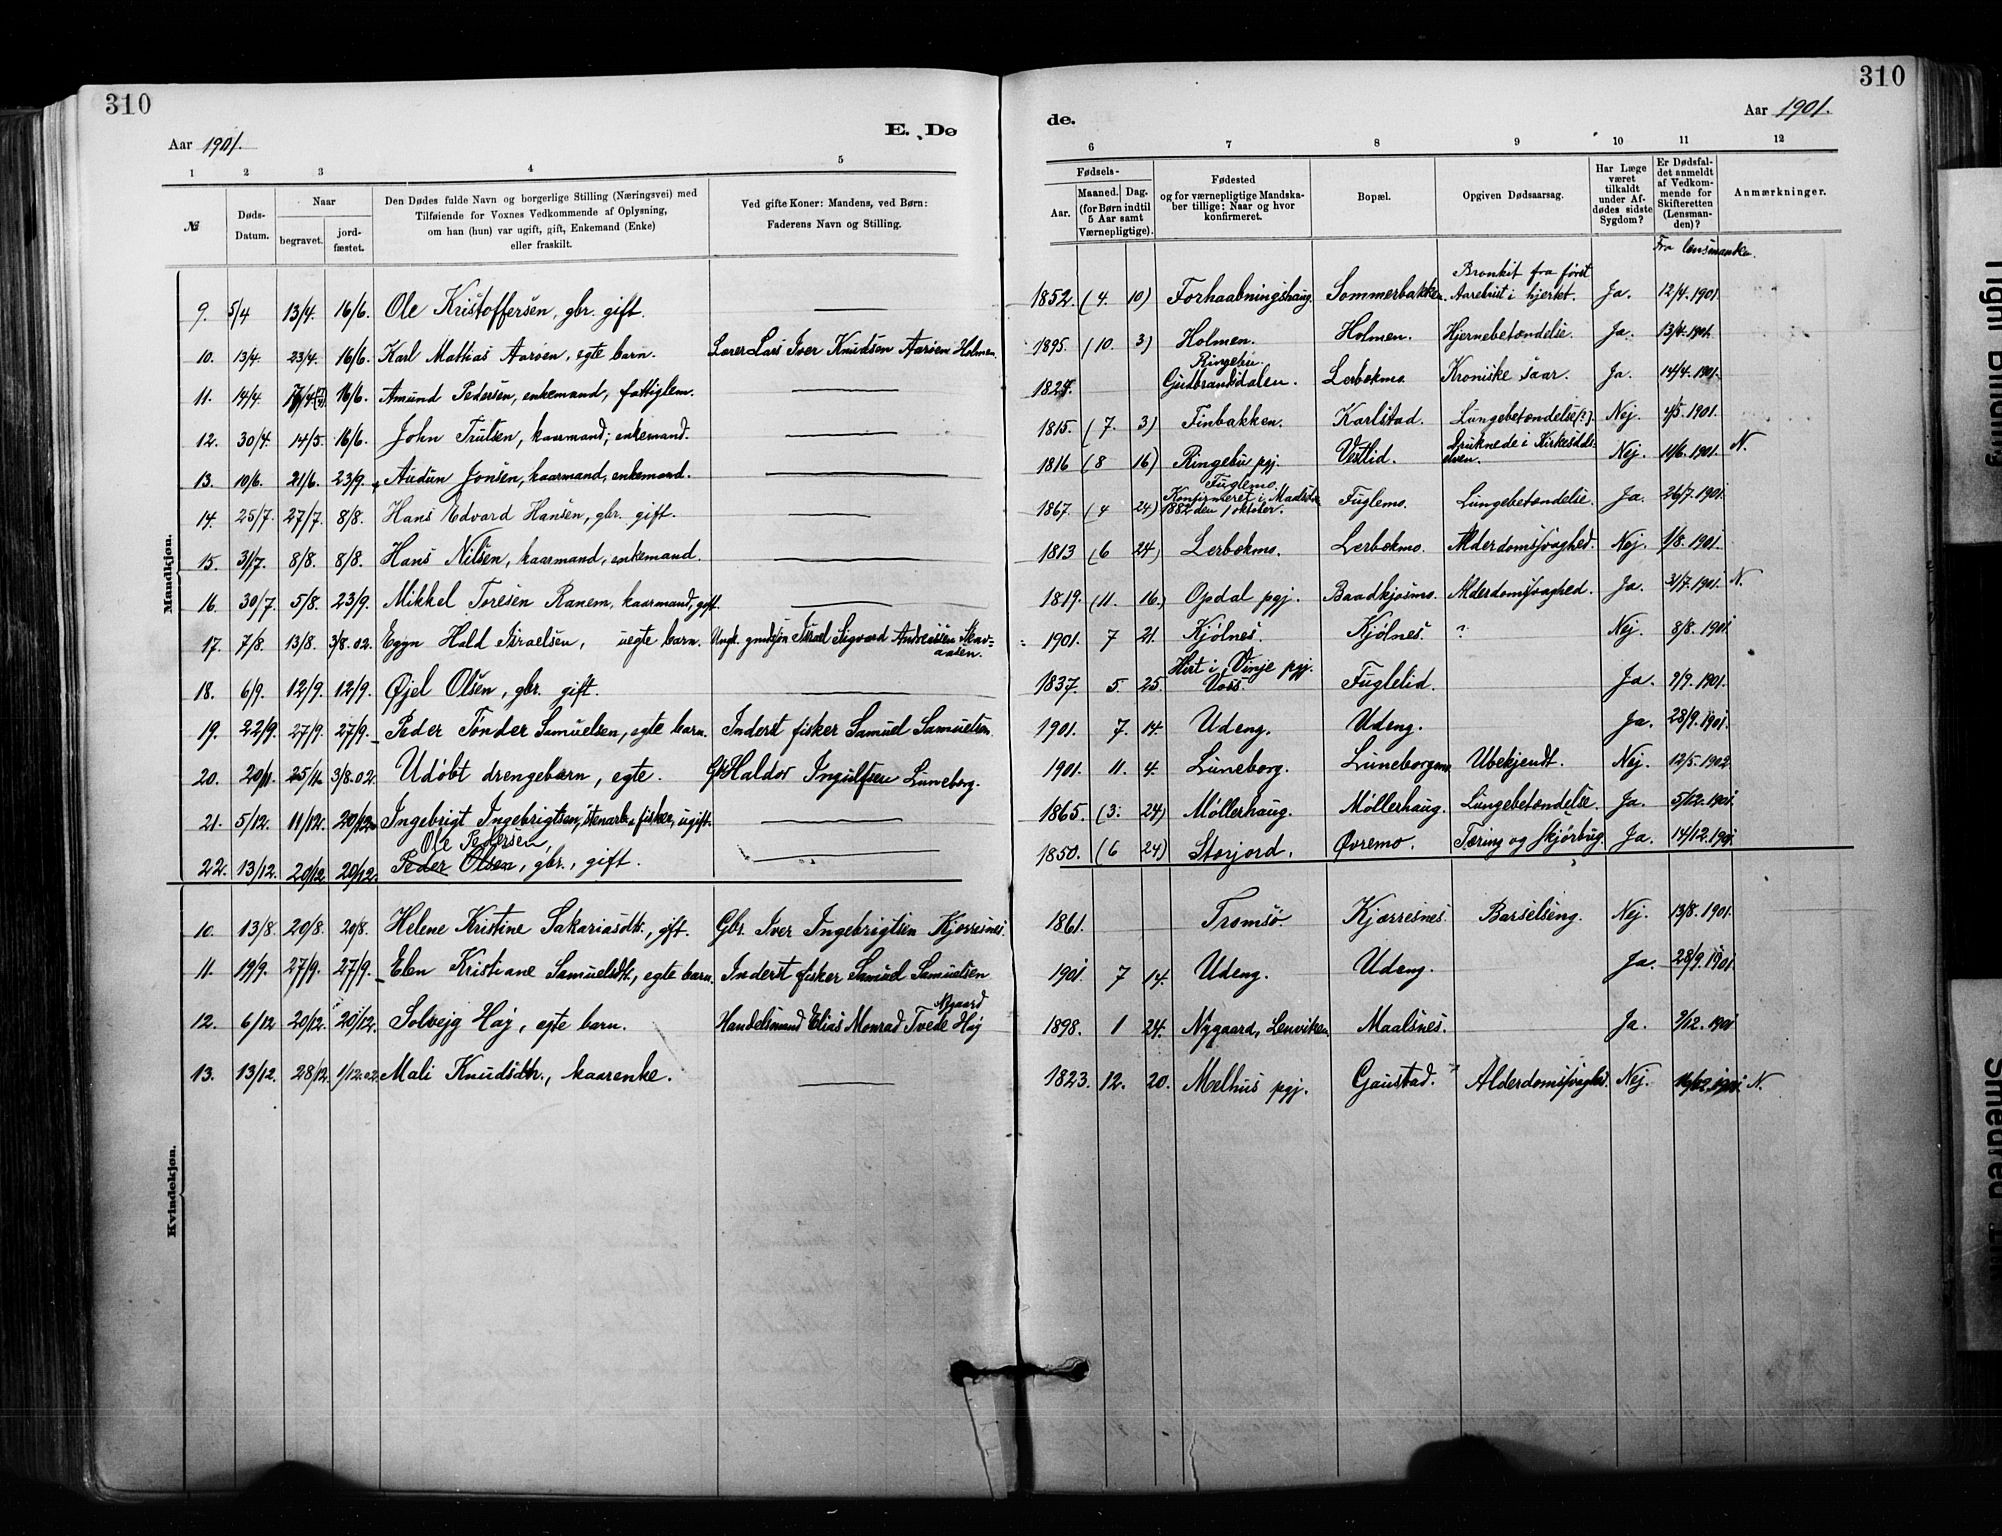 310
310
Aar 1901.
E. Dø
de.
Aar 1901.
1 2 3 4 5
6 7 8 9 10 11 12
№
Døds-Datum.
Naar
begravet.
jord-fæstet.
Den Dødes fulde Navn og borgerlige Stilling (Næringsvei) med
Tilføiende for Voxnes Vedkommende af Oplysning,
om han (hun) var ugift, gift, Enkemand (Enke)
eller fraskilt.
Ved gifte Koner: Mandens, ved Børn:
Faderens Navn og Stilling.
Fødsels-
Aar.
Maaned. Dag.
(for Børn indtil
5 Aar samt
Værnepligtige).
Fødested
og for værnepligtige Mandska-
ber tillige: Naar og hvor
konfirmeret.
Bopæl.
Opgiven Dødsaarsag.
Har Læge
været
tilkaldt
under Af-
dødes sidste
Sygdom?
Er Dødsfal-
det anmeldt
af Vedkom-
mende for
Skifteretten
(Lensman-
den)?
Anmærkninger.
Fra lensmanden.
Mandkjøn.
9. 5/4 13/4. 16/6. Ole Kristoffersen, gbr. gift. 1852. (4. 10) Forhaabningshaug. Sommerbakken. Bronkit fra først Aarebrist i hjertet. Ja. 12/4. 1901
10. 13/4. 23/4. 16/6. Karl Mattias Aarøen, egte barn. Lærer Lars Iver Knudsen Aarøen Holmen. 1895. (10. 3) Holmen. Holmen. Hjernebetændelse. Ja. 13/4. 1901.
11. 14/4. 16/6. Amund Pedersen, enkemand, fattiglem. Ringebu Gudbrandsdalen. Lerbækmo. Kroniske saar. Ja. 14/4. 1901.
12. 30/4. 14/5. 16/6. John Trulsen, kaarmand; enkemand. 1815. (7. 3) Finbakken. Karlstad. Lungebetændelse(?). Nej. 4/5. 1901.
13. 10/6. 21/6. 23/9. Audun Jonsen, kaarmand, enkemand. 1816 (8 16) Ringebu pgj. Vestlid. Druknede i Kirkesdals-elven. Nej. 11/6. 1901. N.
14. 25/7. 27/7. 8/8. Hans Edvard Hansen, gbr. gift. 1867. (4 24) Fuglemo. Konfirmeret i Maalselv 1882 den 1 oktober. Fuglemo. Lungebetændelse. Ja. 26/7. 1901.
15. 31/7. 8/8. 8/8. Hans Nilsen, kaarmand, enkemand. 1813 (6 24) Lerbækmo. Lerbækmo. Alderdomssvaghed. Nej. 1/8. 1901.
16. 30/7. 5/8. 23/9. Mikkel Toresen Ranem, kaarmand, gift. 1819. (11. 16.) Opdal pgj. Baadkjosmo. Alderdomssvaghed. Ja. 31/7. 1901. N.
17. 7/8. 13/8. 3/8.02. Egyn Hald Israelsen, uegte barn. Ungk. gmdsøn Israel Sigvard Andreassen Skavaasen. 1901. 7 21. Kjølnes. Kjølnes. ? Nej. 8/8. 1901
18. 6/9. 12/9. 12/9. Øjel Olsen, gbr. gift. 1837. 5. 25. Hirt i Vinje pgj. Voss. Fuglelid. Ja. 7/9. 1901.
19. 22/9. 27/9. 27/9. Peder Tønder Samuelsen, egte barn. Inderst fisker Samuel Samuelsen. 1901. 7. 14. Udeng. Udeng. Ja. 28/9. 1901
20. 20/11. 25/11. 3/8.02. Udøbt drengebarn, egte. Gbr. Haldor Ingulfsen Luneborg. 1901. 11. 4. Luneborg. Luneborgmo Ubekjendt. Nej. 12/5. 1902
21. 5/12. 11/12. 20/12. Ingebrigt Ingebrigtsen, stenarb. fisker, ugift. 1865. (3: 24) Møllerhaug. Møllerhaug. Lungebetændelse. Ja. 5/12. 1901
Ole Pedersen,
22. 13/12. 20/12. 20/12. Peder Olsen, gbr., gift. 1850. (6 24) Storjord. Øvremo. Tæring og skjørbug. Ja. 14/12. 1901
Kvindekjøn.
10. 13/8. 20/8. 20/8. Helene Kristine Sakariasdt., gift. Gbr. Iver Ingebrigtsen Kjærresnes. 1861. Tromsø. Kjærresnes. Barselseng. Nej. 13/8. 1901.
11. 19/9. 27/9. 27/9. Elen Kristiane Samuelsdt., egte barn. Inderst fisker Samuel Samuelsen 1901 7 14. Udeng. Udeng. Ja. 28/9. 1901
12. 6/12 20/12. 20/12. Solvejg Høj, egte barn. Handelsmand Elias Monrad Tvede Høj Nygaard 1898. 1 24. Nygaard, Lenviken. Maalsnes. Ja. 9/12. 1901
13. 13/12. 28/12. 1/12.02. Mali Knudsdtr., kaarenke. 1823. 12. 20. Melhus pgj. Gaustad. Alderdomssvaghed. Nej. N.